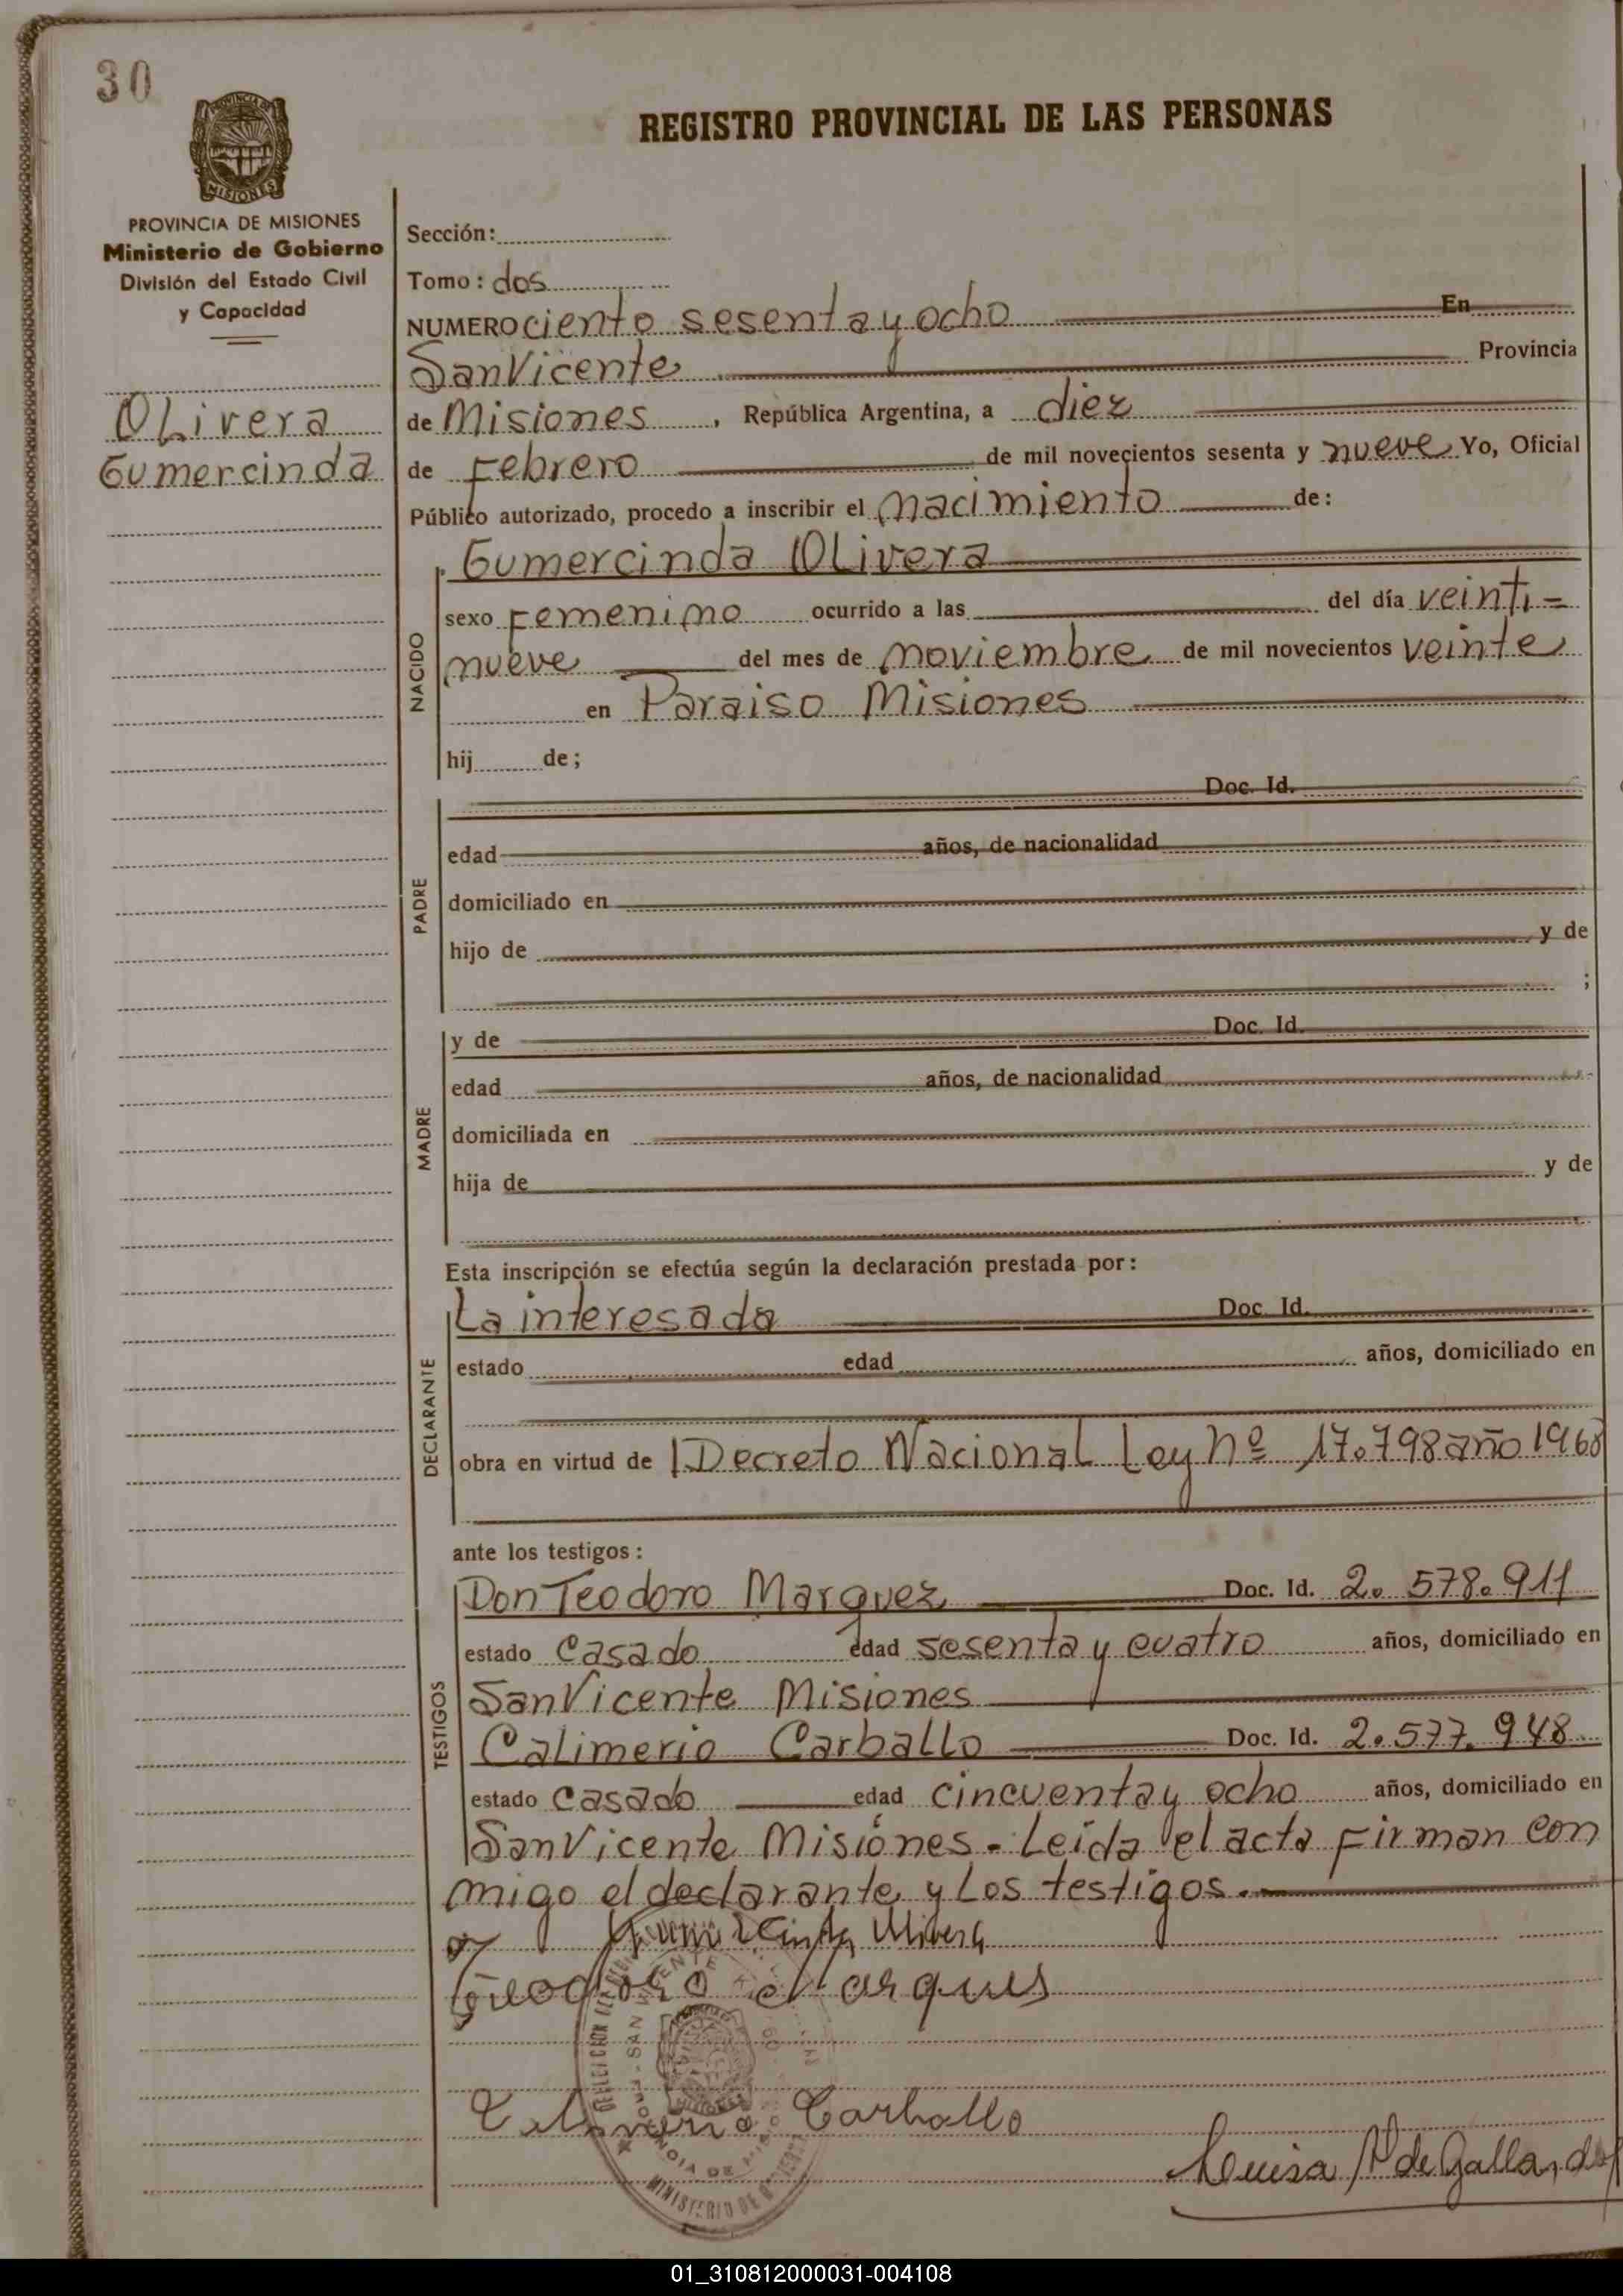 30
PROVINCIA DE MISIONES
REGISTRO PROVINCIAL DE LAS PERSONAS
PROVINCIA DE MISIONES
Ministerio de Gobierno
División del Estado Civil
y Capacidad
OLivera
Gumercinda
Sección:
Tomo: dos
NUMERO ciento sesenta y ocho En
San Vicente Provincia
de Misiones, República Argentina, a diez
de Febrero de mil novecientos sesenta y nueve Yo, Oficial
Público autorizado, procedo a inscribir el nacimiento de:
NACIDO
Gumercinda OLivera
sexo Femenino ocurrido a las del día veinti=
nueve del mes de noviembre de mil novecientos veinte
en Paraiso Misiones
hij de;
PADRE
Doc. Id.
edad años, de nacionalidad
domiciliado en
hijo de y de
;
MADRE
y de Doc. Id.
edad años, de nacionalidad
domiciliada en
hija de y de
Esta inscripción se efectúa según la declaración prestada por:
DECLARANTE
La interesada Doc. Id.
estado edad años, domiciliado en
obra en virtud de Decreto Nacional Ley nº 17.798 año 1968
ante los testigos:
TESTIGOS
Don Teodoro Marquez Doc. Id. 2.578.911
estado casado edad sesenta y cuatro años, domiciliado en
San Vicente Misiones
Calimerio Carballo Doc. Id. 2.577.948
estado casado edad cincuenta y ocho años, domiciliado en
San Vicente Misiones. Leída el acta Firman con
migo el declarante y Los testigos.
Gumercinda Olivera
Teodoro Marques
Calimerio Carballo
Luisa de Gallardo
MINISTERIO DE
01_310812000031-004108